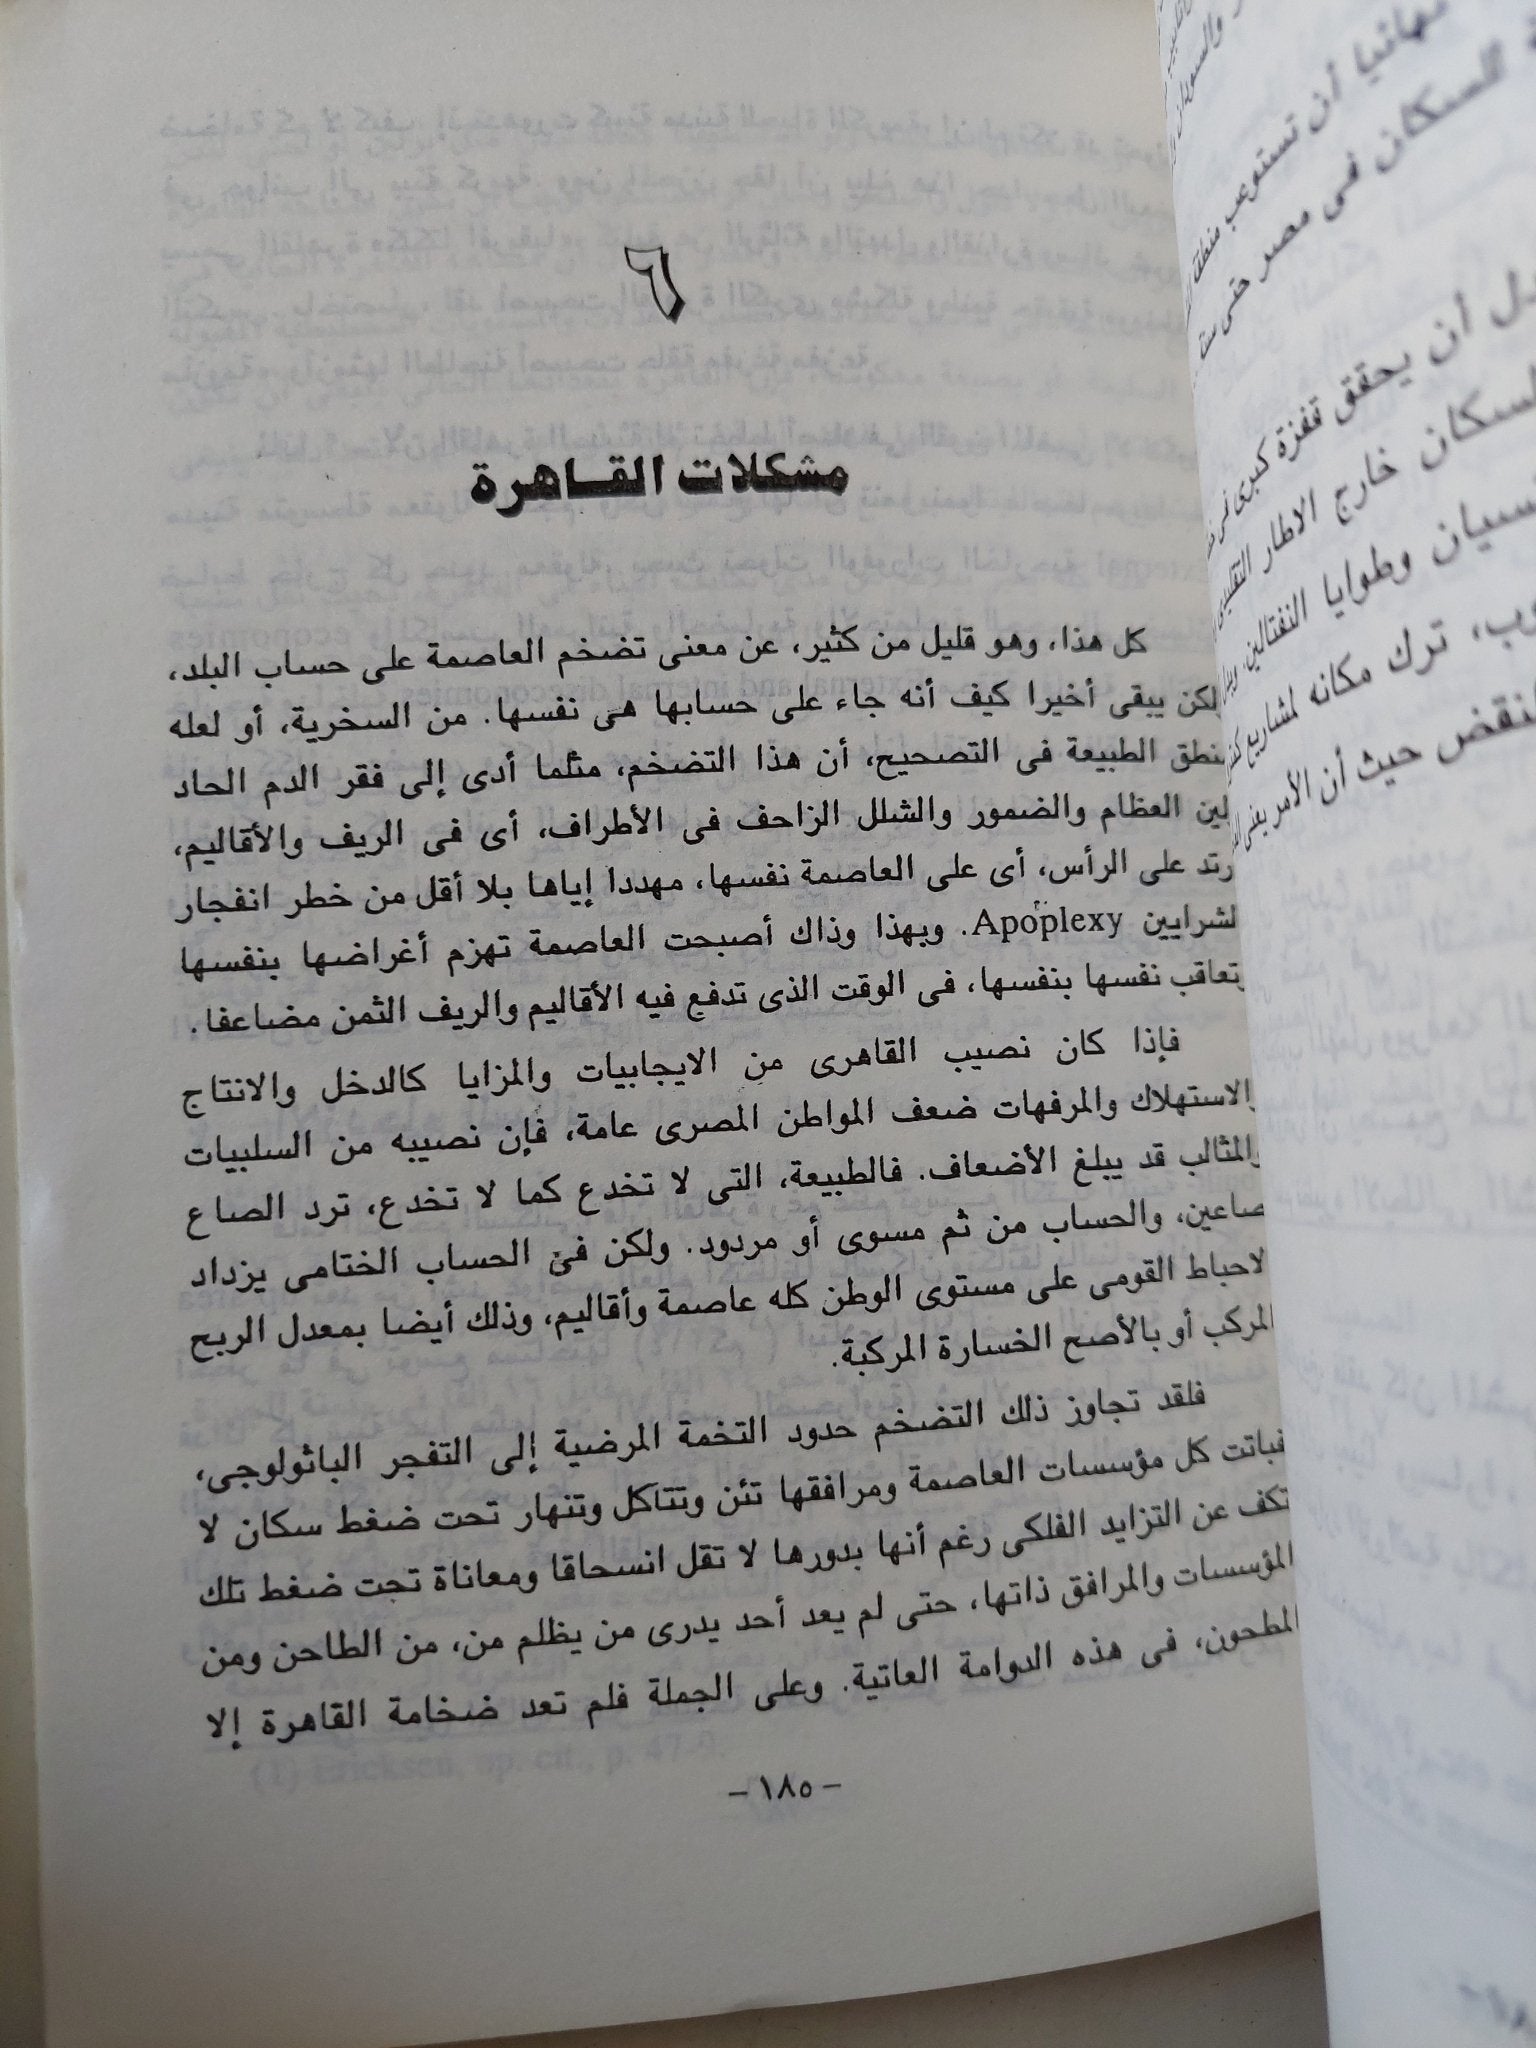 ٦
مشكلات القاهرة
كل هذا، وهو قليل من كثير، عن معنى تضخم العاصمة على حساب البلد،
ولكن يبقى أخيرا كيف أنه جاء على حسابها هى نفسها. من السخرية، أو لعله
منطق الطبيعة فى التصحيح، أن هذا التضخم، مثلما أدى إلى فقر الدم الحاد
ولين العظام والضمور والشلل الزاحف فى الأطراف، أى فى الريف والأقاليم،
ارتد على الرأس، أى على العاصمة نفسها، مهددا إياها بلا أقل من خطر انفجار
الشرايين Apoplexy. وبهذا وذاك أصبحت العاصمة تهزم أغراضها بنفسها
وتعاقب نفسها بنفسها، فى الوقت الذى تدفع فيه الأقاليم والريف الثمن مضاعفا.
فإذا كان نصيب القاهرى من الايجابيات والمزايا كالدخل والانتاج
والاستهلاك والمرفهات ضعف المواطن المصرى عامة، فإن نصيبه من السلبيات
والمثالب قد يبلغ الأضعاف. فالطبيعة، التى لا تخدع كما لا تخدع، ترد الصاع
صاعين، والحساب من ثم مسوى أو مردود. ولكن فى الحساب الختامى يزداد
الاحباط القومى على مستوى الوطن كله عاصمة وأقاليم، وذلك أيضا بمعدل الربح
المركب أو بالأصح الخسارة المركبة.
فلقد تجاوز ذلك التضخم حدود التخمة المرضية إلى التفجر الباثولوجى،
فباتت كل مؤسسات العاصمة ومرافقها تئن وتتاكل وتنهار تحت ضغط سكان لا
تكف عن التزايد الفلكى رغم أنها بدورها لا تقل انسحاقا ومعاناة تحت ضغط تلك
المؤسسات والمرافق ذاتها، حتى لم يعد أحد يدرى من يظلم من، من الطاحن ومن
المطحون، فى هذه الدوامة العاتية. وعلى الجملة فلم تعد ضخامة القاهرة إلا
- ١٨٥ -
نهائيا أن تستوعب
السكان فى مصر حتى
أن يحقق قفزة كبرى فى
السكان خارج الاطار التقليدى
وطوايا النفتالين
ترك مكانه لمشاريع
حيث أن الأمر يعنى